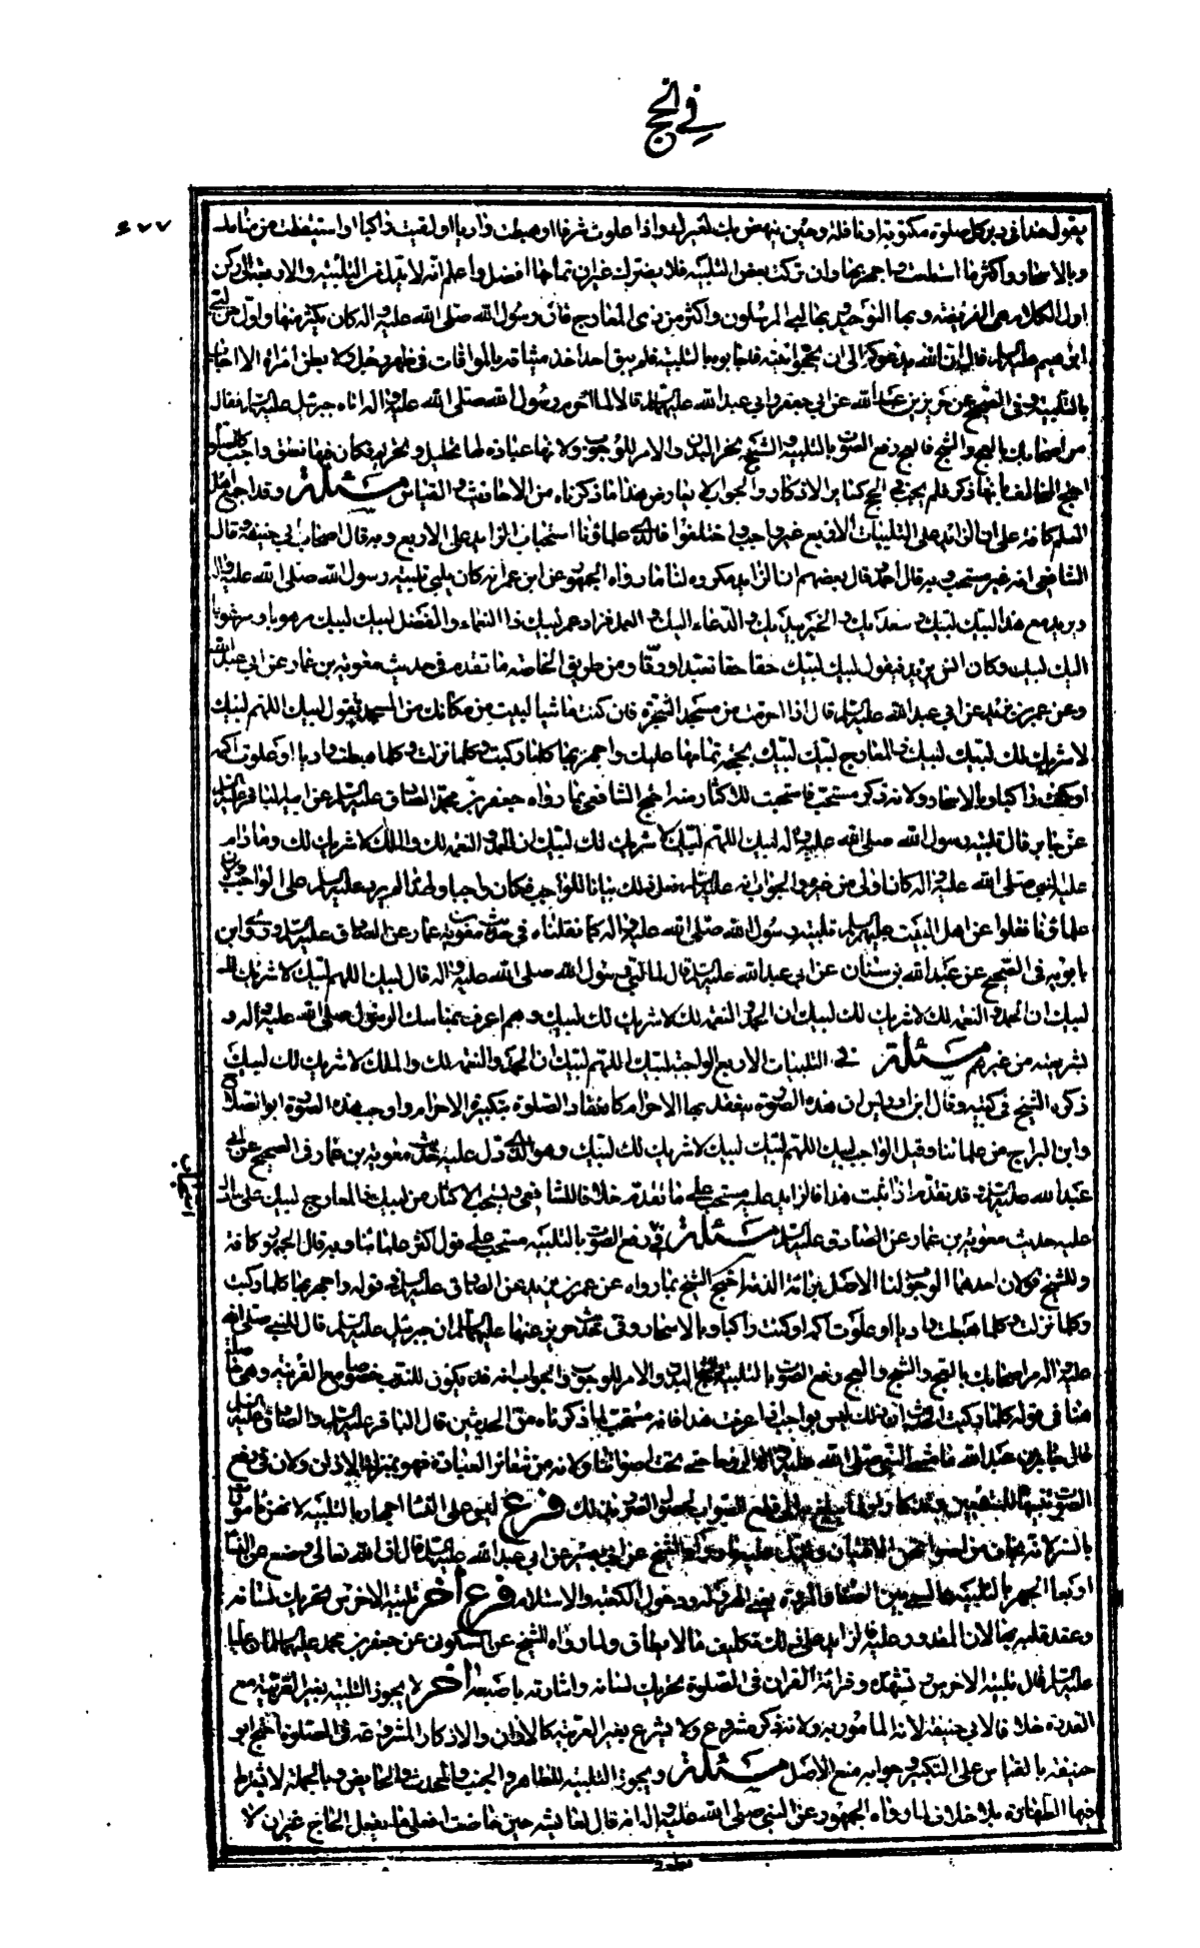 في الحج
٦٧٧
يقول هذا في دبر كل صلوة مكتوبة او نافلة وحين ينهض بك بعيرك واذا علوت شرفا او هبطت واديا او لقيت راكبا او استيقظت من منامك
وبالاسحار واكثر ما استطعت واجهر بها وان تركت بعض التلبية فلا يضرك غير ان تمامها افضل واعلم انه لا بد لك من التلبية
اول الكلام هي الفريضة وبها التوحيد وبها لبى المرسلون واكثر من ذي المعارج فان رسول الله صلى الله عليه واله كان يكثر منها واول من لبى
ابرهيم عليه السلم قال ان الله يدعوكم الى ان تحجوا بيته فاجابوه بالتلبية فلم يبق احد اخذ ميثاقه بالموافات في ظهر رجل ولا بطن امراة الا اجاب
بالتلبية وفي الصحيح عن حريز بن عبد الله عن ابي جعفر وابي عبد الله عليهما السلم قالا لما احرم رسول الله صلى الله عليه واله اتاه جبرئيل عليه السلم فقال
مر اصحابك بالعج والثج فالعج رفع الصوت بالتلبية والثج نحر البدن والامر للوجوب ولانها عبادة لها تحليل وتحريم فكان فيها نطق واجب كالصلوة
احتج المخالف بانها ذكر فلم يجب في الحج كساير الاذكار والجواب لا يعارض هذا ما ذكرناه من الاحاديث والقياس مسئلة وقد اجمع اهل
العلم كافة على ان الزايد على التلبيات الاربع غير واجب واختلفوا فالذي علماؤنا استحباب الزايد على الاربع وبه قال اصحاب ابي حنيفة وقال
الشافعي انه غير مستحب وبه قال احمد وقال بعضهم ان الزايد مكروه لنا ما رواه الجمهور عن ابن عمر انه كان يلبي تلبية رسول الله صلى الله عليه واله
ويزيد مع هذا لبيك لبيك وسعديك والخير بيديك والدعاء اليك والعمل فزاد عمر لبيك ذا النعماء والفضل لبيك لبيك مرهوبا ومرغوبا
اليك لبيك وكان انس يزيد فيقول لبيك لبيك حقا حقا تعبدا ورقا ومن طريق الخاصة ما تقدم في حديث معوية بن عمار عن ابي عبد الله
وعن عمر بن يزيد عن ابي عبد الله عليه السلم قال اذا احرمت من مسجد الشجرة فان كنت ماشيا لبيت من مكانك من المسجد تقول لبيك اللهم لبيك
لا شريك لك لبيك لبيك ذا المعارج لبيك لبيك بحجة تمامها عليك واجهر بها كلما ركبت وكلما نزلت وكلما هبطت واديا او علوت اكمة
او لقيت راكبا وبالاسحار ولانه ذكر مستحب فاستحب الاكثار منه احتج الشافعي بما رواه جعفر بن محمد الصادق عليه السلم عن ابيه الباقر عليه السلم
عن جابر قال تلبية رسول الله صلى الله عليه واله لبيك اللهم لبيك لا شريك لك لبيك ان الحمد والنعمة لك والملك لا شريك لك وما داوم
عليه النبي صلى الله عليه واله كان اولى من غيره والجواب انه عليه السلم فعل ذلك بيانا للواجب فكان واجبا ولهذا لم يزد عليه السلم على الواجب
علماؤنا نقلوا عن اهل البيت عليهم السلم تلبية رسول الله صلى الله عليه واله كما نقلناه في حديث معوية بن عمار عن الصادق عليه السلم وروى ابن
بابويه في الصحيح عن عبد الله بن سنان عن ابي عبد الله عليه السلم قال لما لبى رسول الله صلى الله عليه واله قال لبيك اللهم لبيك لا شريك لك
لبيك ان الحمد والنعمة لك لا شريك لك لبيك وهم اعرف بمناسك الرسول صلى الله عليه واله و
بشريعته من غيرهم مسئلة في التلبيات الاربع الواجبة لبيك اللهم لبيك ان الحمد والنعمة لك والملك لا شريك لك لبيك
ذكره الشيخ في كتبه وقال ابن ادريس ان هذه الصورة ينعقد بها الاحرام كانعقاد الصلوة بتكبيرة الاحرام واوجب هذه الصورة ابو الصلاح
وابن البراج من علمائنا وقيل الواجب لبيك اللهم لبيك لبيك لا شريك لك لبيك وهو الذي دل عليه حديث معوية بن عمار في الصحيح عن ابي
عبد الله عليه السلم وقد تقدم اذا ثبت هذا فالزايد عليه مستحب على ما تقدم خلافا للشافعي ويستحب الاكثار من لبيك ذا المعارج لبيك على ما دل
عليه حديث معوية بن عمار عن الصادق عليه السلم مسئلة في رفع الصوت بالتلبية مستحب على قول اكثر علمائنا وبه قال الجمهور كافة
وللشيخ قولان احدهما الوجوب لنا الاصل براءة الذمة احتج الشيخ بما رواه عن عمر بن يزيد عن الصادق عليه السلم في قوله واجهر بها كلما ركبت
وكلما نزلت وكلما هبطت واديا او علوت اكمة او كنت راكبا وبالاسحار وفي حديث حريز عنهما عليهما السلم ان جبرئيل عليه السلم قال للنبي صلى الله
عليه واله مر اصحابك بالعج والثج والعج رفع الصوت بالتلبية والثج نحر البدن والامر للوجوب والجواب انه قد يكون للندب خصوصا مع القرينة وهي حاصلة
هنا في قوله كلما ركبت الحديث اذ ذلك ليس بواجب اذا عرفت هذا فانه مستحب لما ذكرناه من الحديثين قال الباقر عليه السلم والصادق عليه السلم
قال جابر بن عبد الله فما مشى النبي صلى الله عليه واله الى الروحا حتى بحت اصواتنا ولانه من شعائر العبادة فهو بمنزلة الاذان ولان في رفع
فرع ليس على النساء اجهار بالتلبية لانهن مأمورات
بالستر
او بعا الجهر بالتلبية والسعي بين الصفا والمروة يعني الهرولة ودخول الكعبة والاستلام فرع اخر تلبية الاخرس تحريك لسانه
وعقد قلبه بها لان المقدور عليه فالزايد على ذلك تكليف ما لا يطاق ولما رواه الشيخ عن السكوني عن جعفر بن محمد عليهما السلم ان عليا
عليه السلم قال تلبية الاخرس وتشهده وقراءته القران في الصلوة تحريك لسانه واشارته باصبعه اخر لا يجوز التلبية بغير العربية مع
القدرة خلافا لابي حنيفة لانه المامور به ولانه ذكر مشروع ولا يشرع بغير العربية كالاذان والاذكار المشروعة في الصلوة احتج ابو
حنيفة بالقياس على التكبير وجوابه منع الاصل مسئلة ويجوز التلبية للطاهر والجنب والمحدث والحائض وبالجملة لا يشترط
فيها الطهارة بلا خلاف لما رواه الجمهور عن النبي صلى الله عليه واله انه قال لعائشة حين حاضت افعلي ما يفعل الحاج غير ان لا